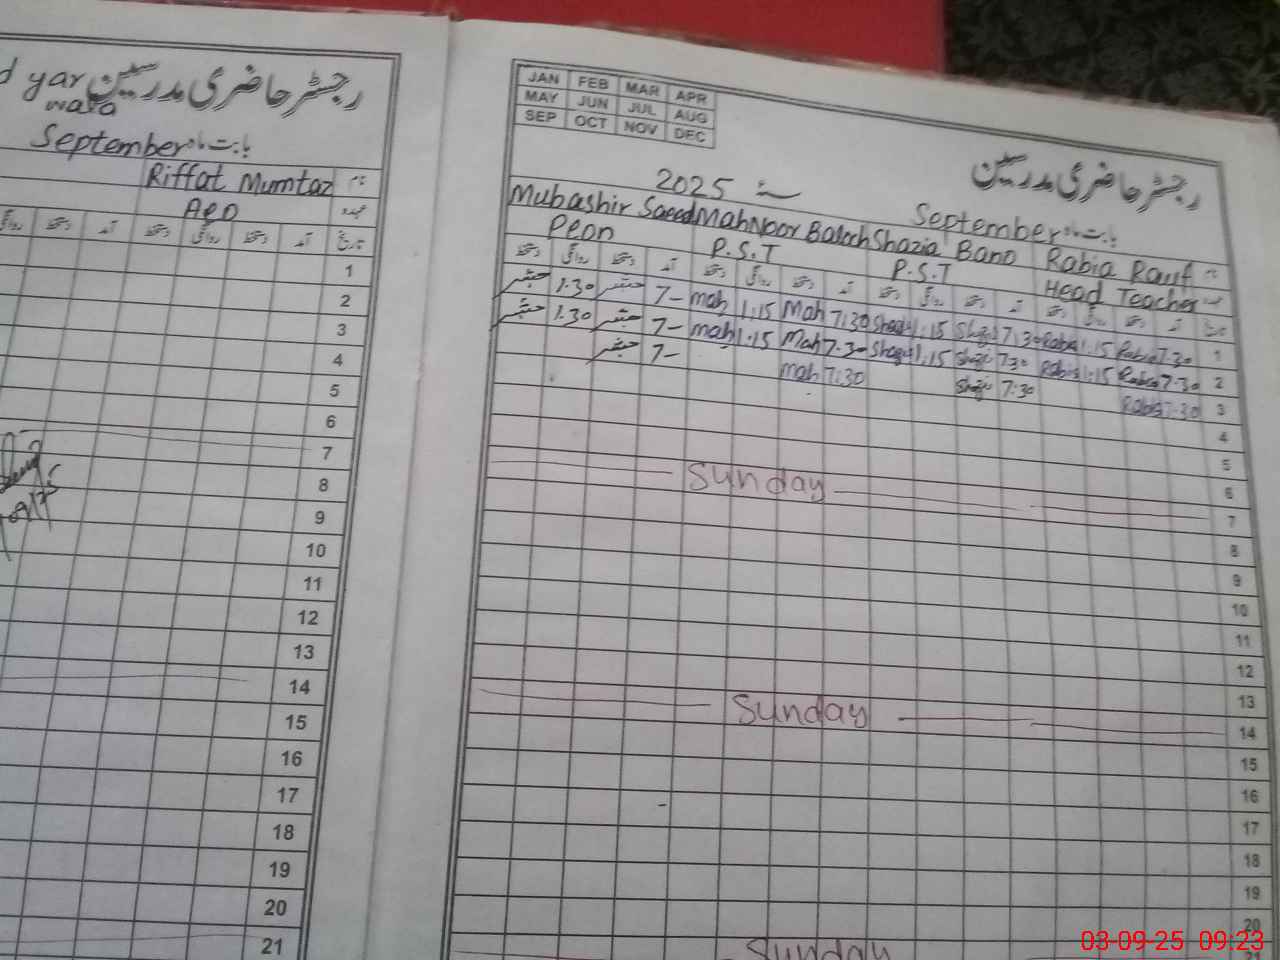 d yar رجسٹر حاضری مدرسین
wala
September بابت ماہ
Riffat Mumtaz نام
AEO عہدہ
روانگی دستخط آمد دستخط روانگی دستخط آمد تاریخ
1
2
3
4
5
6
7
8
9
10
11
12
13
14
15
16
17
18
19
20
21
JAN FEB MAR APR
MAY JUN JUL AUG
SEP OCT NOV DEC
رجسٹر حاضری مدرسین
2025 سنہ
September بابت ماہ
Mubashir Saeed MahNoor Baloch Shazia Bano Rabia Rauf نام
Peon P.S.T P.S.T Head Teacher عہدہ
دستخط روانگی دستخط آمد دستخط روانگی دستخط آمد دستخط روانگی دستخط آمد دستخط روانگی دستخط آمد تاریخ
مبشر 1.30 مبشر 7- mah 1.15 Mah 7:30 1.15 7:30 Rabia 1.15 Rabia 7.30 1
مبشر 1.30 مبشر 7- mah 1.15 Mah 7.30 1.15 7:30 Rabia 1:15 Rabia 7.30 2
مبشر 7- mah 7:30 7:30 Rabia 7.30 3
4
5
6
Sunday 7
8
9
10
11
12
13
Sunday 14
15
16
17
18
19
20
Sunday 21
03-09-25 09:23